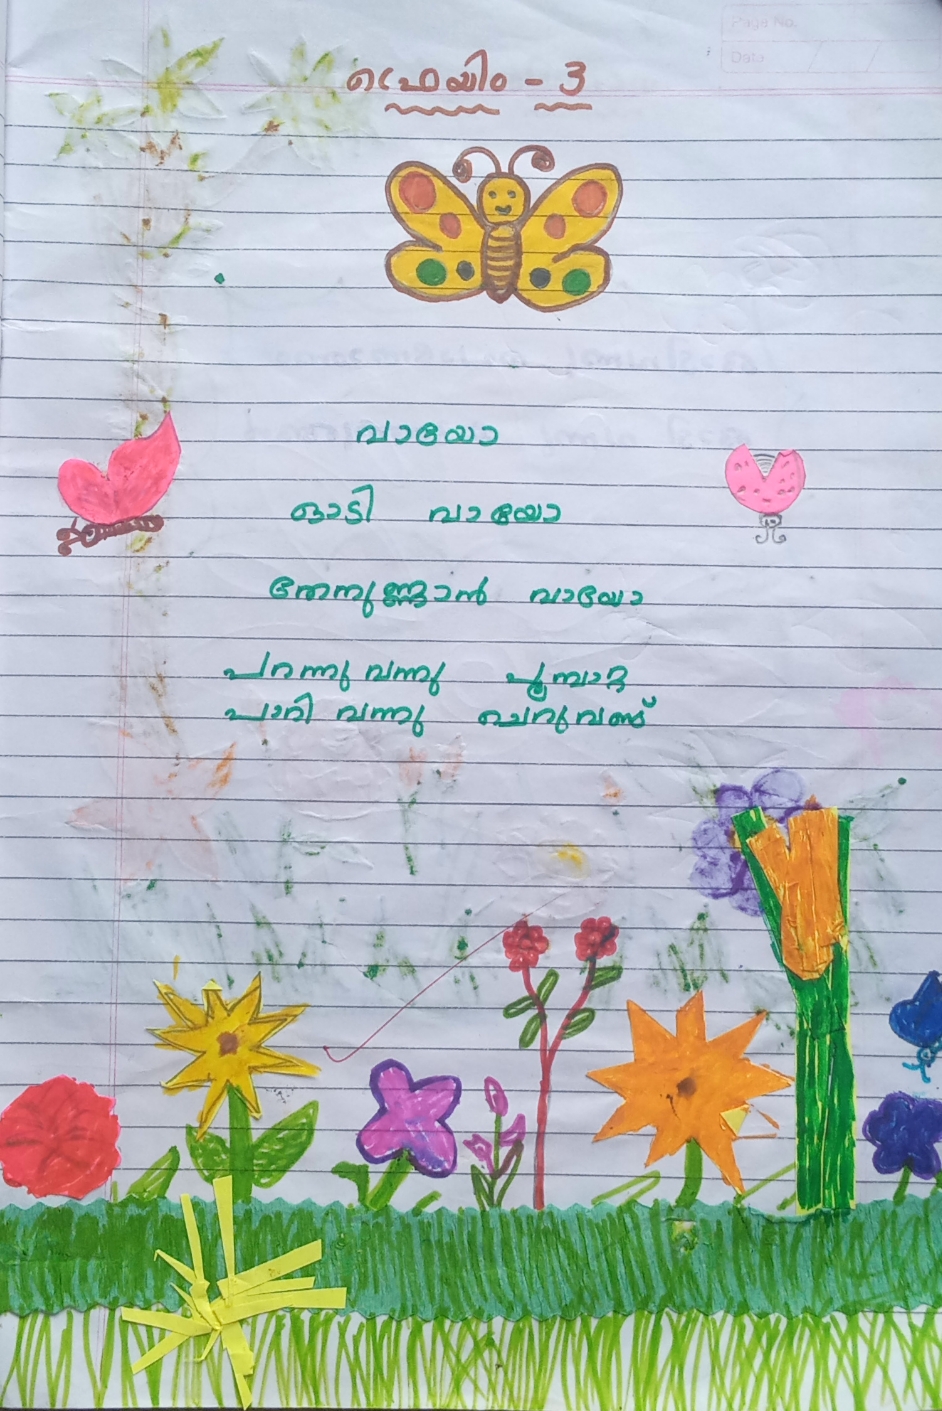 Page No.
Date
ഫ്രെയിം - 3
വായോ
ഓടി വായോ
തേനുണ്ണാൻ വായോ
പറന്നു വന്നു പൂമ്പാറ്റ
പാറി വന്നു ചെറുവണ്ട്